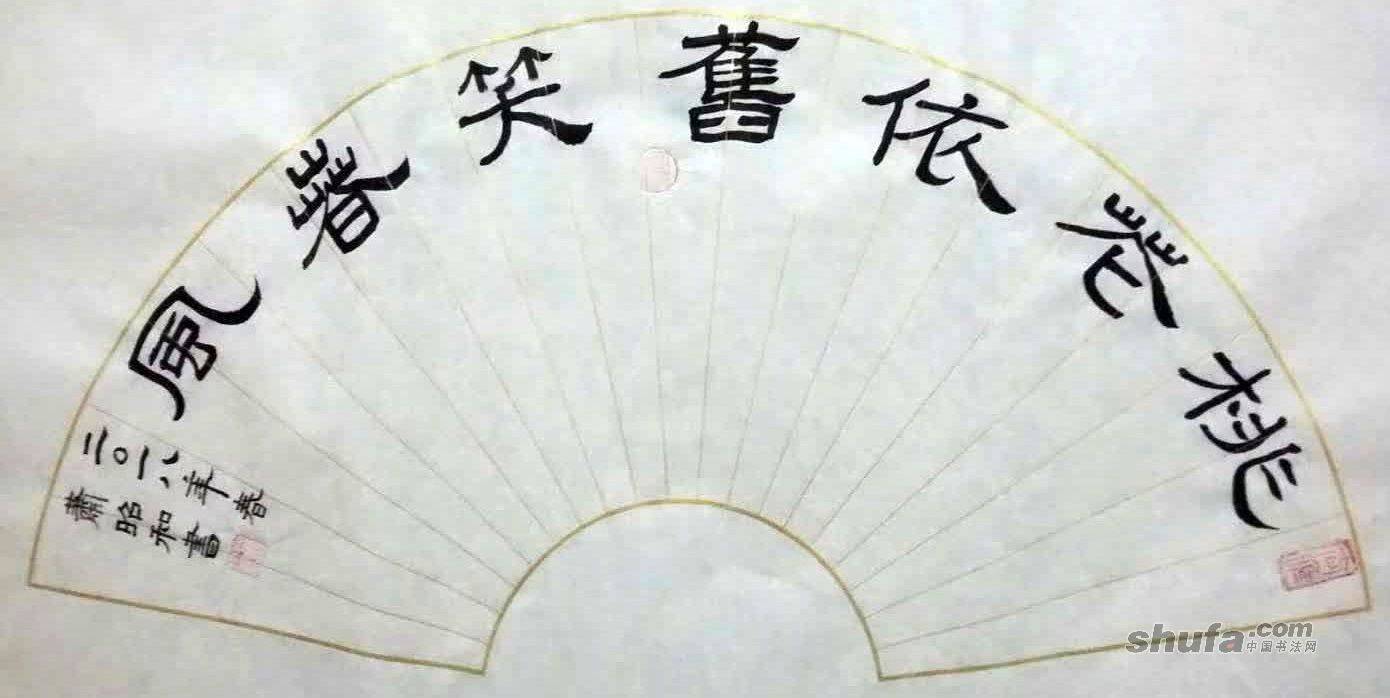 桃花依舊笑春風
二〇一八年春
蕭昭和書
shufa.com
中国书法网